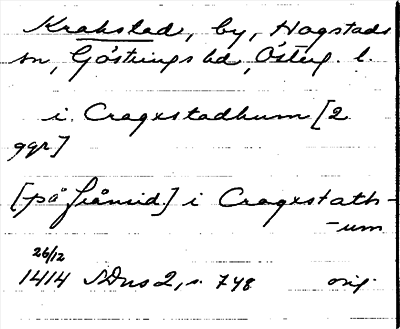 Krakstad, by, Hogstads
sn, Göstrings hd, Österg. l.
i. Cragxstadhum [2
ggr]
[på frånsid.] i Cragxstath-
-um
26/12
1414 SDns 2, s. 748 orig.